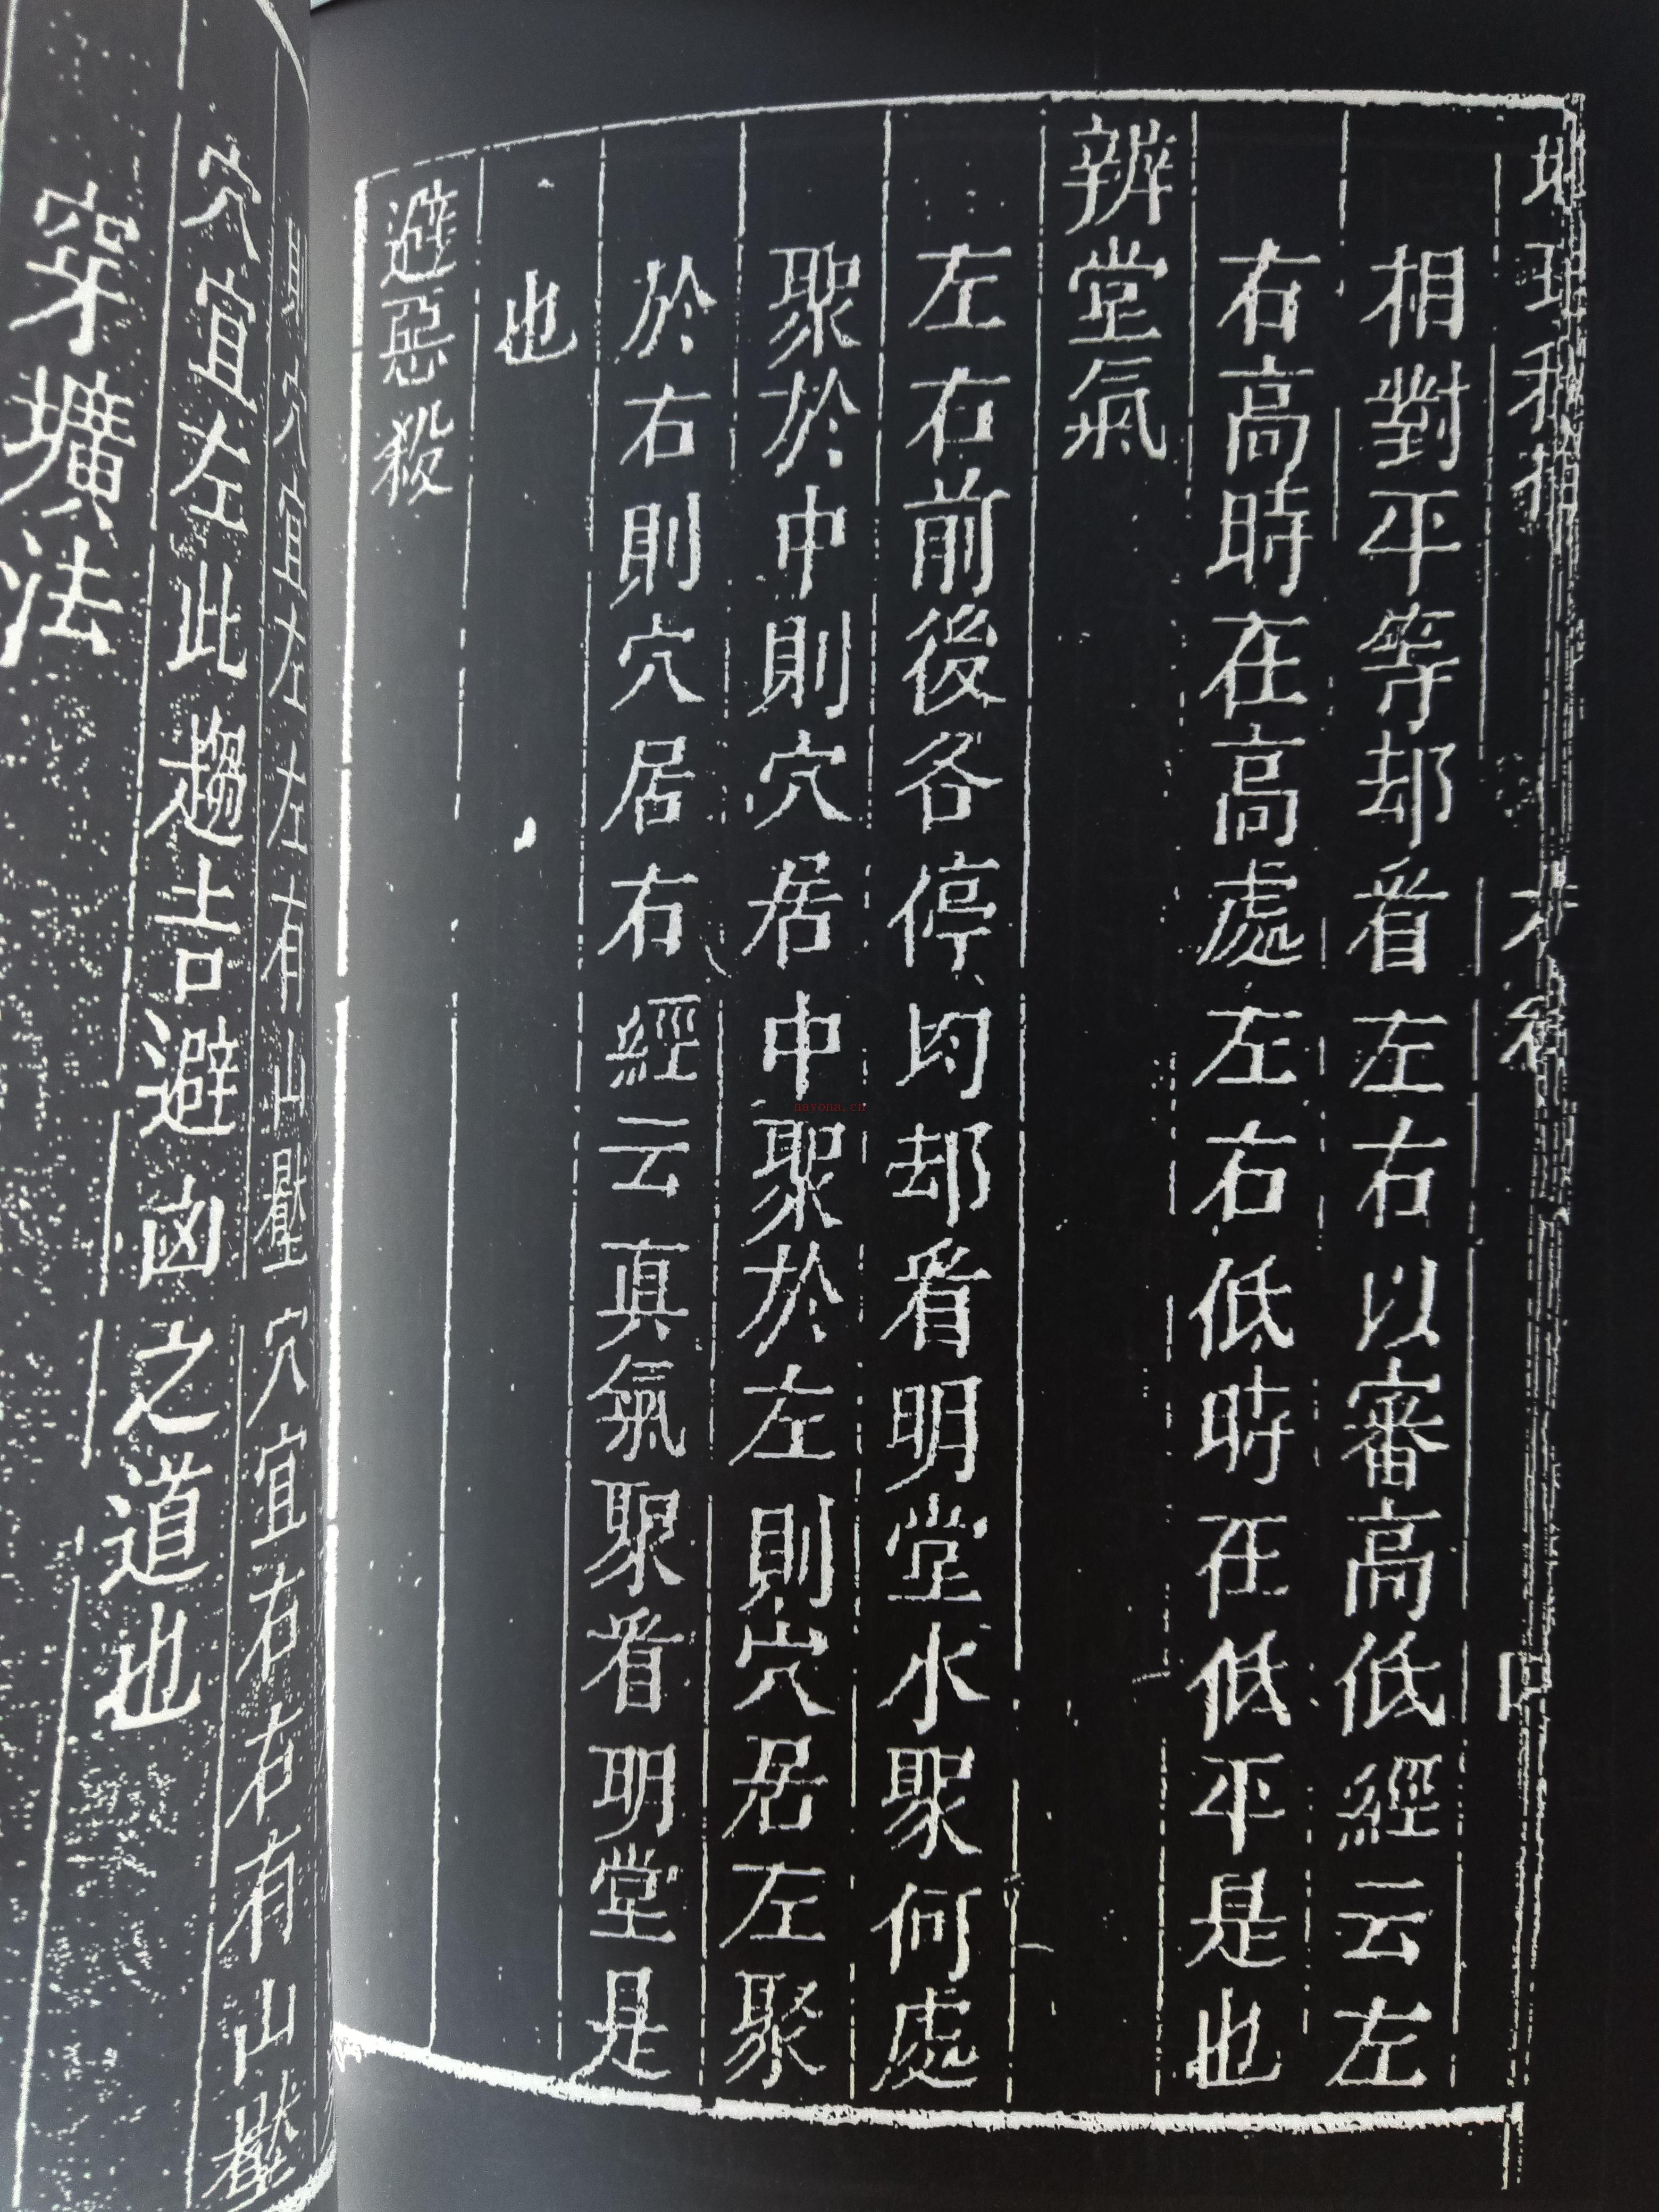 相對平等却看左右以審高低經云左
右高時在高處左右低時在低平是也
辨堂氣
左右前後各停均却看明堂水聚何處
聚於中則穴居中聚於左則穴居左聚
於右則穴居右經云真氣聚看明堂是
也
避惡殺
則穴宜左左左有山壓穴宜右右有山壓
穴宜左此趨吉避凶之道也
穿壙法
navona.cn